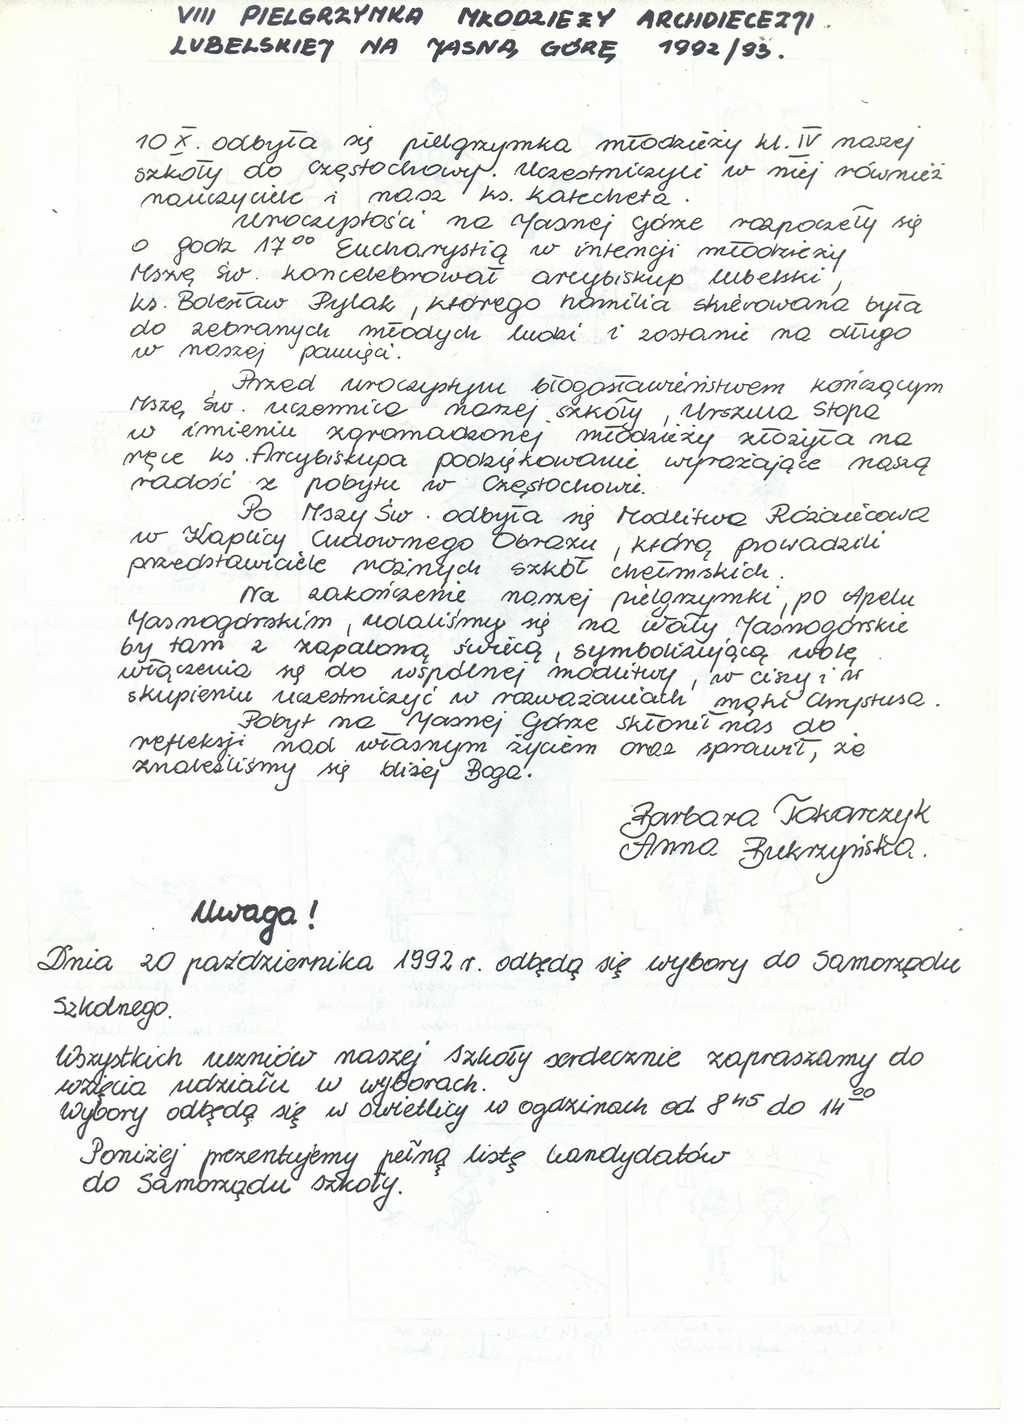 VIII PIELGRZYMKA MŁODZIEŻY ARCHDIECEZJI
LUBELSKIEJ NA JASNĄ GÓRĘ 1992/93.
10 X. odbyła się pielgrzymka młodzieży kl. IV naszej
szkoły do Częstochowy. Uczestniczyli w niej również
nauczyciele i nasz ks. katecheta.
Uroczystości na Jasnej Górze rozpoczęły się
o godz 17⁰⁰ Eucharystią w intencji młodzieży
Mszę Św. koncelebrował arcybiskup lubelski,
ks. Bolesław Pylak, którego homilia skierowana była
do zebranych młodych ludzi i zostanie na długo
w naszej pamięci.
Przed uroczystym błogosławieństwem kończącym
Mszę Św. uczennica naszej szkoły, Urszula Stopa
w imieniu zgromadzonej młodzieży złożyła na
ręce ks. Arcybiskupa podziękowanie wyrażające naszą
radość z pobytu w Częstochowie.
Po Mszy Św. odbyła się Modlitwa Różańcowa
w Kaplicy Cudownego Obrazu, którą prowadzili
przedstawiciele różnych szkół chełmskich.
Na zakończenie naszej pielgrzymki, po Apelu
Jasnogórskim, udaliśmy się na Wały Jasnogórskie
by tam z zapaloną świecą, symbolizującą wolę
włączenia się do wspólnej modlitwy, w ciszy i w
skupieniu uczestniczyć w rozważaniach męki Chrystusa.
Pobyt na Jasnej Górze skłonił nas do
refleksji nad własnym życiem oraz sprawił, że
znaleźliśmy się bliżej Boga.
Barbara Tokarczyk
Anna Bukrzyńska.
Uwaga!
Dnia 20 października 1992 r. odbędą się wybory do Samorządu
Szkolnego.
Wszystkich uczniów naszej szkoły serdecznie zapraszamy do
wzięcia udziału w wyborach.
Wybory odbędą się w świetlicy w ogdzinach od 8⁴⁵ do 14⁰⁰
Poniżej prezentujemy pełną listę kandydatów
do Samorządu szkoły.